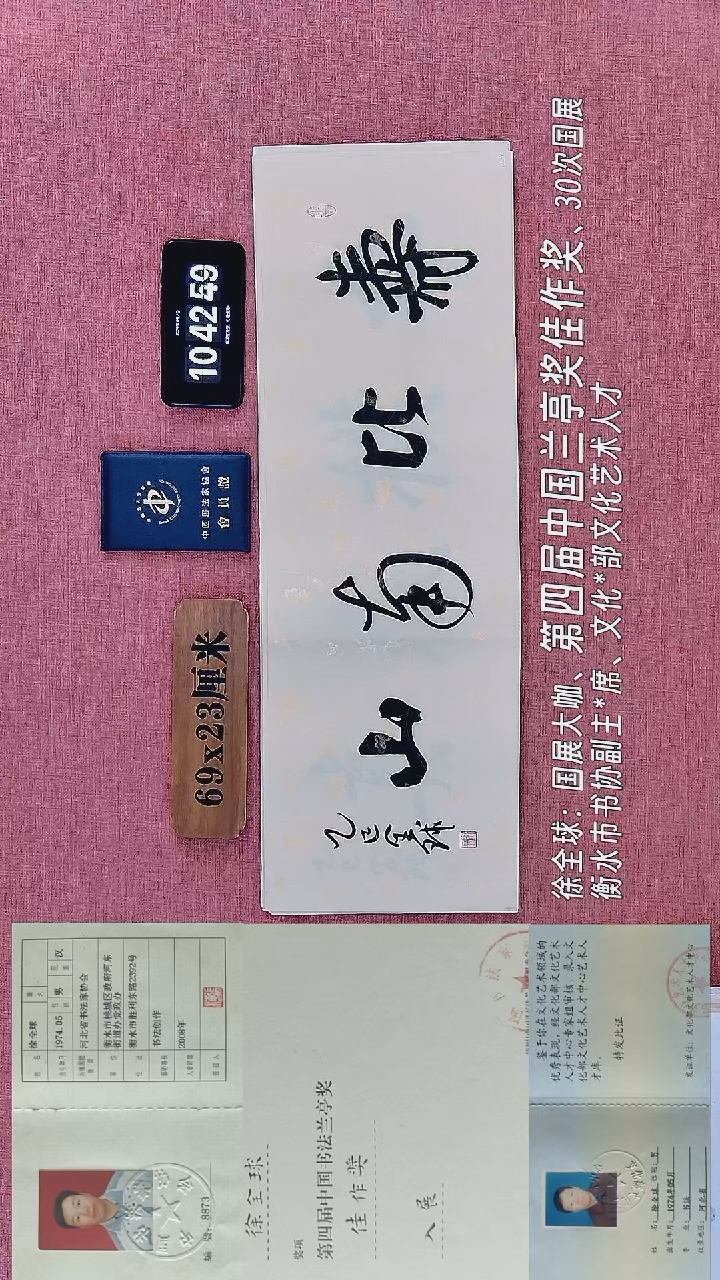 壽比南山
乙巳全球
10 42 59
中国书法家協會
會員證
69x23厘米
徐全球：国展大咖、第四届中国兰亭奖佳作奖、30次国展
衡水市书协副主*席、文化*部文化艺术人才
徐全球
1974.05
男
汉
河北省书法家协会
衡水市桃城区政府河东
街道办党政办
衡水市胜利东路2292号
书法创作
2008年
编号: 8873
徐全球
奖项
第四届中国书法兰亭奖
佳作奖
入展
鉴于你在文化艺术领域的
优秀表现，经文化部文化艺术
人才中心专家组审核，录入文
化部文化艺术人才中心艺术人
才库。
特发此证
发证单位：文化部文化艺术人才中心
姓名：徐全球 性别：男
出生年月：1974年05月
专业：书法